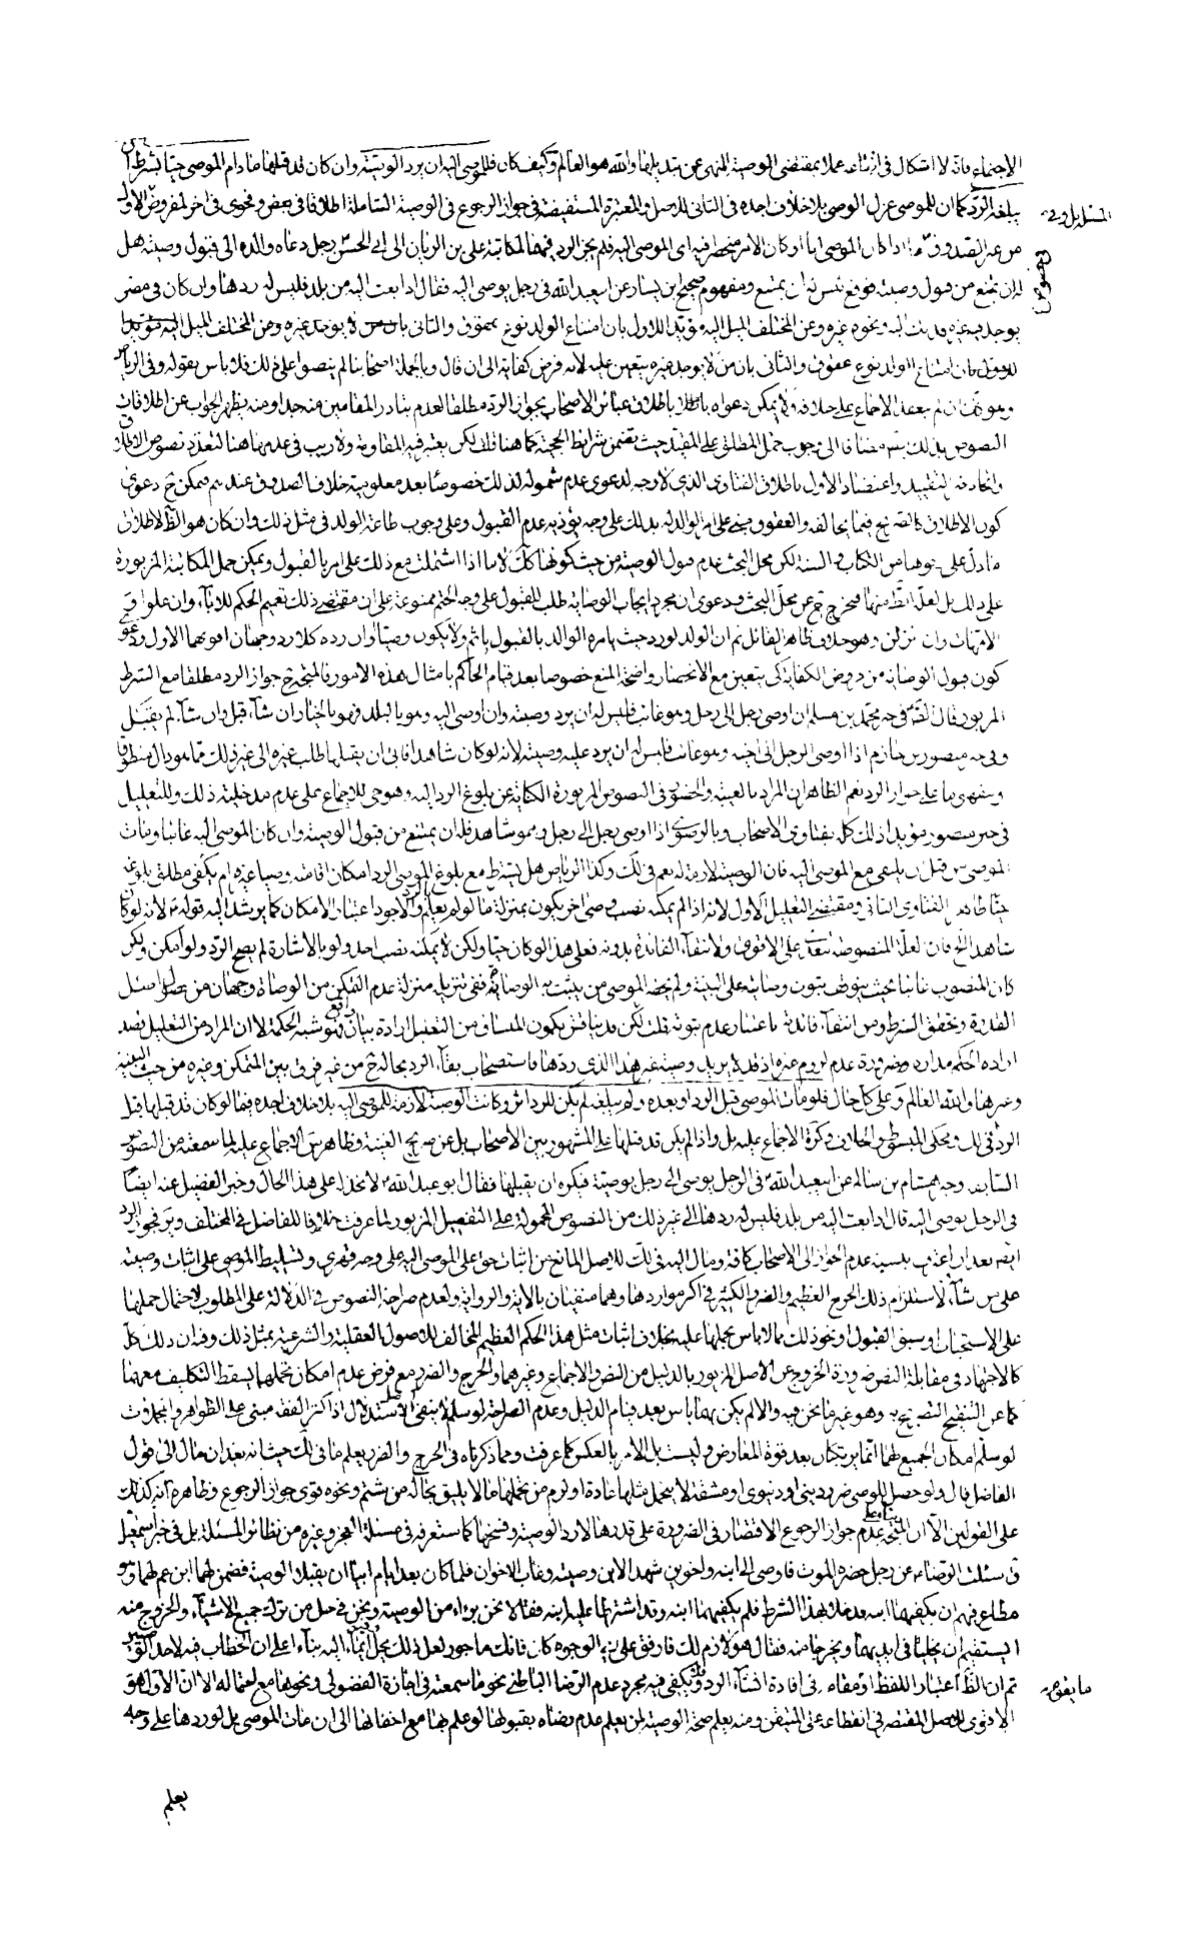 الاجتماع فانه لا اشكال في عملا بمقتضى الوصية المنهى عن تبديلها والله هو العالم وكيف كان فللموصى اليه ان يرد الوصية وان كان قد قبلها مادام الموصى حيا بشرط ان
يبلغه الرد كما ان للموصى عزل الوصى بلا خلاف اجده في الثاني للاصل والمعتبرة المستفيضة في جواز الرجوع في الوصية الشاملة اطلاقا في بعض وفحوى في اخر لمفروض الاول
اذا كان الموصى ابا او كان الامر منحصرا فيه اى الموصى اليه فلم يجز الرد فيهما لمكاتبة على بن الريان الى ابى الحسن رجل دعاه والده الى قبول وصيته هل
له ان يمتنع من قبول وصيته فوقع ليس له ان يمتنع ومفهوم صحيح ابن يسار عن ابيعبد الله في رجل يوصى اليه فقال اذا بعث اليه من بلد فليس له ردها وان كان في مصر
يوجد فيه غيره فذلك اليه ونحوه غيره وعن المختلف الميل اليه مؤيدا للاول بان امتناع الولد نوع عقوق والثاني بان من لا يوجد غيره
للاول بان امتناع الولد نوع عقوق والثاني بان من لا يوجد غيره يتعين عليه لانه فرض كفاية الى ان قال وبالجملة اصحابنا لم ينصوا على ذلك فلا باس بقوله وفي الرياض
وهو كك ان لم ينعقد الاجماع على خلافه ولا يمكن دعواه باطلاق عبائر الاصحاب بجواز الرد مطلقا لعدم تبادر المقامين منه جدا ومنه يظهر الجواب عن اطلاقات
النصوص بذلك مضافا الى وجوب حمل المطلق على المقيد حيث يتضمن شرايط الحجية كما هنا قلت لكن يعتبر فيه المقاومة ولا ريب في عدمها هنا لتعدد نصوص الاطلاق
واتحاد التقييد واعتضاد الاول باطلاق الفتاوى الذى لا وجه لدعوى عدم شموله لذلك خصوصا بعد معلومية خلاف الصدوق عندهم فيمكن ح دعوى
كون الاطلاق كالصريح فيما يخالفه والعقوق مبنى على امر الوالد له بذلك على وجه يؤذيه عدم القبول وعلى وجوب طاعة الولد في مثل ذلك وان كان هو الظ لاطلاق
ما دل على من الكتاب والسنة لكن محل البحث عدم قبول الوصية من حيث كونها كك لا ما اذا اشتملت مع ذلك على امر بالقبول ويمكن حمل المكاتبة المزبورة
على ذلك بل لعله الظ منها فتخرج ح عن محل البحث ودعوى ان مجرد ايجاب الوصاية طلب للقبول على وجه الحتم ممنوعة على ان مقتضى ذلك تعميم الحكم للاباء وان علوا و
الامهات وان نزلن وهو خلاف ظاهر القائل ثم ان الولد لو رد حيث يامره الوالد بالقبول ياثم ولا يكون وصيا او ان رده كلا رد وجهان اقويهما الاول ودعوى
كون قبول الوصاية من فروض الكفاية كى يتعين مع الانحصار واضحة المنع خصوصا بعد قيام الحاكم بامثال هذه الامور فالمتجه ح جواز الرد مطلقا مع الشرط
المزبور قال الصه في خبر محمد بن مسلم ان اوصى رجل الى رجل وهو غائب فليس له ان يرد وصيته وان اوصى اليه وهو بالبلد فهو بالخيار ان شاء قبل وان شاء لم يقبل
وفي خبر منصور بن حازم اذا اوصى الرجل الى اخيه وهو غائب فليس له ان يرد عليه وصيته لانه لو كان شاهدا فابى ان يقبلها طلب غيره الى غير ذلك مما هو دال منطوقا
ومفهوما على جواز الرد نعم الظاهر ان المراد بالغيبة والحضور في النصوص المزبورة الكناية عن بلوغ الرد اليه وهو حى للاجماع على عدم مدخلية ذلك وللتعليل
في خبر منصور مؤيدا ذلك كله بفتاوى الاصحاب وبالرضوى اذا اوصى رجل الى رجل وهو شاهد فله ان يمتنع من قبول الوصية وان كان الموصى اليه غائبا ومات
الموصى من قبل ان يلتقى مع الموصى اليه فان الوصية لازمة له نعم في لك وكذا الرياض هل يشترط مع بلوغ الموصى الرد امكان اقامته وصيا غيره ام يكفى مطلق بلوغه
حيا ظاهر الفتاوى الثاني ومقتضى التعليل الاول لانه اذا لم يمكنه نصب وصى اخر يكون بمنزلة ما لو لم يعلم بالرد والاجود اعتبار الامكان كما يرشد اليه قوله لانه لو كان
شاهدا الخ فان لعلة المنصوصة على الاقوى ولانتفاء الفائدة بدونه فعلى هذا لو كان حيا ولكن لا يمكنه نصب احد ولو بالاشارة لم يصح الرد ولو امكن ولكن
كان المنصوب غائبا بحيث يتوقف ثبوت وصايته على البينة ولم يحضر الموصى من يثبت به الوصاية ففى تنزيله منزلة عدم التمكن من الوصاة وجهان من حصول اصل
القدرة وتحقق الشرط ومن انتفاء فائدته باعتبار عدم ثبوته قلت لكن قد يناقش بكون المنساق من التعليل ارادة بيان شبه الحكمة لا ان المراد من التعليل قصد
ارادة الحكم مداره
وغيرها والله العالم وعلى كل حال فلو مات الموصى قبل الرد او بعده ولم يبلغه لم يكن للرد اثر وكانت الوصية لازمة للموصى اليه بلا خلاف اجده فيما لو كان قد قبلها قبل
الرد في لك ومحكى المبسوط والخلاف وكرة الاجماع عليه بل واذا لم يكن قد قبلها على المشهور بين الاصحاب بل عن صريح الغنية وظاهر س الاجماع عليه لما سمعته من النصوص
السابقة وخبر هشام بن سالم عن ابيعبد الله في الرجل يوصى الى رجل بوصية فيكره ان يقبلها فقال ابو عبد الله لا يخذله على هذا الحال وخبر الفضيل عنه ايضا
في الرجل يوصى اليه قال اذا بعث اليه من بلد فليس له ردها الى غير ذلك من النصوص المحمولة على التفصيل المزبور لما عرفت خلافا للفاضل في المختلف وير فجوز الرد
ايضا بعد ان اعترف بنسبة عدم الجواز الى الاصحاب كافة ومال اليه في لك للاصل المانع من اثبات حق على الموصى اليه على وجه قهرى وتسليط الموصى على اثبات وصيته
على من شاء لاستلزام ذلك الحرج العظيم والضرر الكثير في اكثر مواردها وهما منفيان بالاية والرواية ولعدم صراحة النصوص في الدلالة على المطلوب لاحتمال حملها
على الاستحباب او سبق القبول ونحو ذلك مما لا باس بحملها عليه بخلاف اثبات مثل هذا الحكم العظيم المخالف للاصول العقلية والشرعية بمثل ذلك وفيه ان ذلك كله
كالاجتهاد في مقابلة النص ضرورة الخروج عن الاصل المزبور بالدليل من النص والاجماع وغيرهما والحرج والضرر مع فرض عدم امكان تحملهما يسقط التكليف معهما
كما عن التنقيح التصريح به وهو غير ما نحن فيه والا لم يكن بهما باس بعد قيام الدليل وعدم الصراحة لو سلم لا ينفى الاستدلال اذ اكثر الفقه مبنى على الظواهر
لو سلم امكان الجميع لها انما يرتكب بعد قوة المعارض وليست بل الامر بالعكس كما عرفت ومما ذكرناه في الحرج والضرر يعلم ما في لك حيث انه بعد ان مال الى قول
الفاضل قال ولو حصل للموصى ضرر دينى او دنيوى او مشقة لا يتحمل مثلها عادة او لزم من تحملها ما لا يليق بحاله من شتم ونحوه قوى جواز الرجوع وظاهره انه كذلك
على القولين الا ان المتجه بناء على عدم جواز الرجوع الاقتصار في الضرورة على قدرها لا رد الوصية وفسخها كما ستعرفه في مسئلة العجز وغيره من نظائر المسئلة بل في خبر اسمعيل
سئلت الرضا عن رجل حضره الموت فاوصى الى ابنه واخوين شهد الابن وصيته وغاب الاخوان فلما كان بعد ايام ابيا ان يقبلا الوصية فضمن لهما ابن عم لهما وهو
مطاع فيهم ان يكفيهما ابنه فدخلا بهذا الشرط فلم يكفيهما ابنه وقد اشترطا عليه ابنه فقالا نحن براء من الوصية ونحن في حل من ترك جميع الاشياء والخروج منه
ايستقيم ان يخليا في ايديهما ويخرجا منه فقال هو لازم لك فارفق على اى الوجوه كان فانك ماجور لعل ذلك يحل بابنه بناء على ان الخطاب فيه لاحد
ثم ان الظ اعتبار اللفظ او مقامه في افادة انشاء الرد ولا يكفى فيه مجرد عدم الرضا الباطنى نحو ما سمعته في اجازة الفضولى ونحوها مع احتماله الا ان الاول هو
الاقوى للاصل المقتصر في انقطاعه على المتيقن ومنه يعلم صحة الوصية لمن يعلم عدم رضاه بقبولها لو علم بها مع اخفائها الى ان مات الموصى بل لو ردها على وجه
يعلم